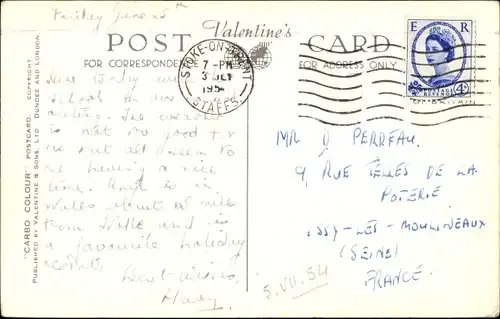 Friday June 25th
POST Valentine's CARD
FOR CORRESPONDENCE FOR ADDRESS ONLY
STOKE-ON-TRENT
7-PM
3 JLY
1954
STAFFS.
E R
POSTAGE
4D
school
outing. The weather
is not too good for
us but all seem to
be having a nice
time. is in
Wales about miles
from Stoke and is
a favourite holiday
resort.
Best wishes,
MR D PERREAU.
9, RUE TELLES DE LA
POTERIE
ISSY-LES-MOULINEAUX
(SEINE)
FRANCE.
5.VII.54
"CARBO COLOUR" POSTCARD. COPYRIGHT.
PUBLISHED BY VALENTINE & SONS, LTD. DUNDEE AND LONDON.